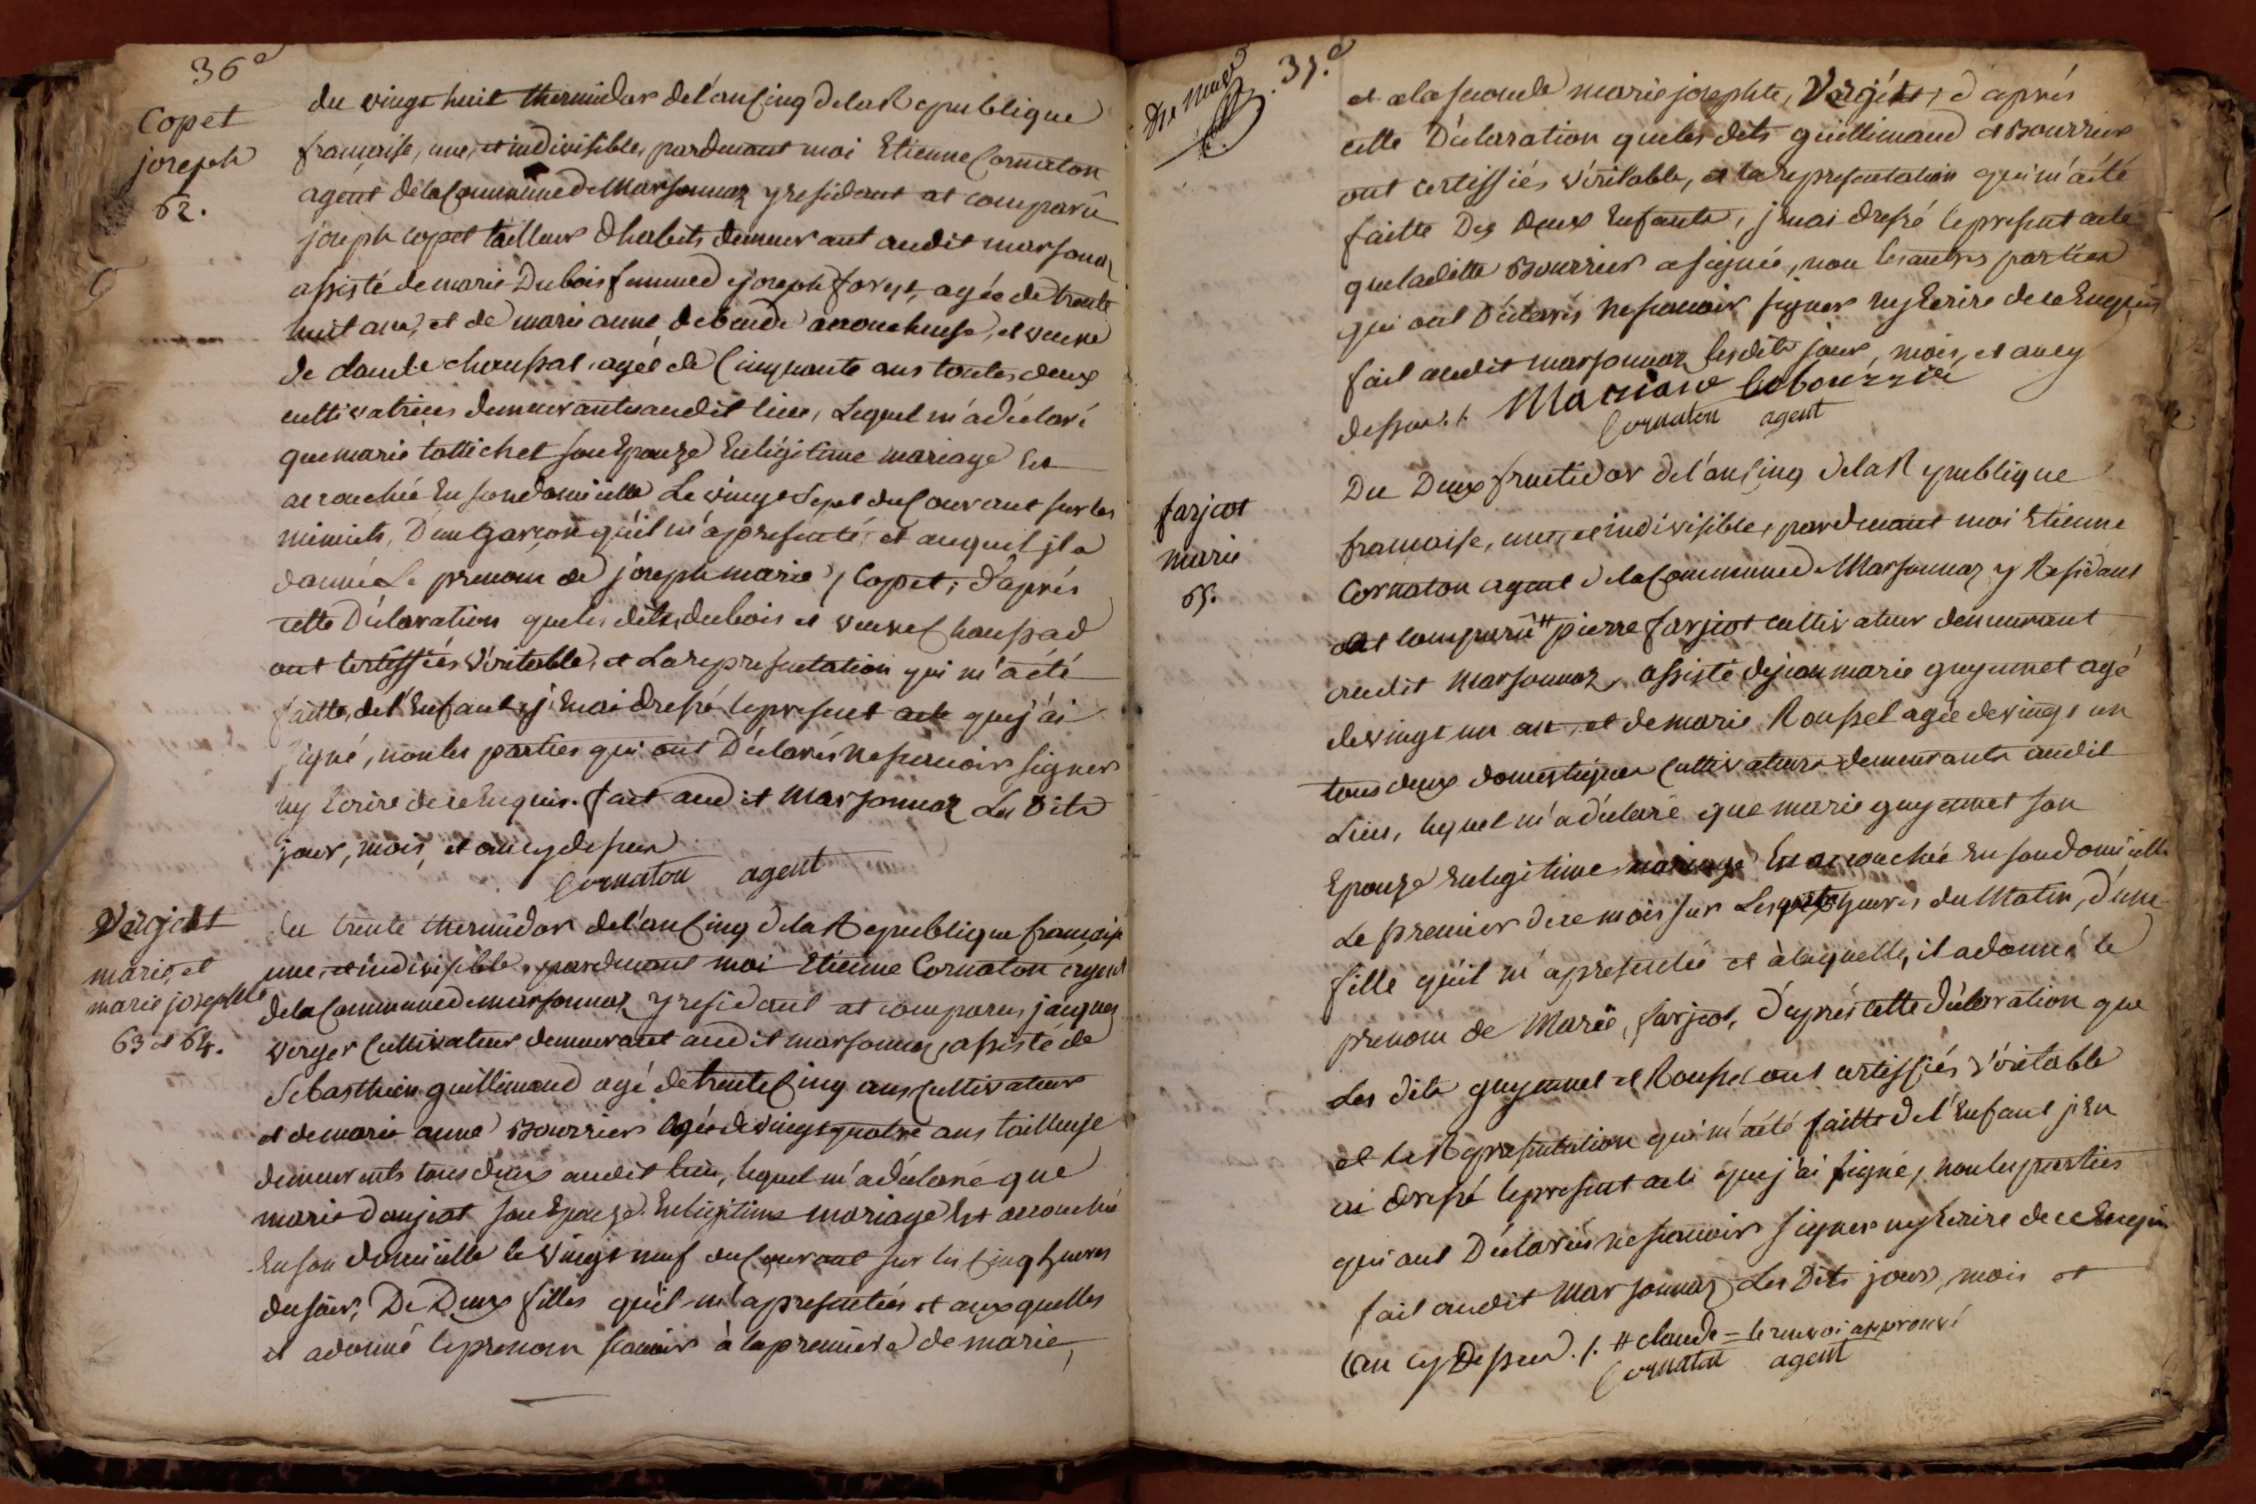 36e
Copet
joseph
62.
du vingt huit thermidor de l'an Cinq de la Republique
francaise, une, et indivisible, pardevant moi Etienne Cornaton
agent de la Commune de Marsonnaz y residant at comparû
joseph copet tailleur d'habits demeurant audit marsonnaz
assisté de marie Dubois femme de joseph foret, agée de trente
huit ans, et de marie anne debeude accoucheuse, et veuve
de claude choussat, agée de Cinquante ans toutes deux
cultivatrices demeurantes audit lieu, Lequel m'a déclaré
que marie tattichet son Epouze En légitime mariage Est
accouchée En son domicille Le vingt Sept du Courant sur les
minuits, D'un garçon qu'il m'a presenté, et auquel jl a
donné Le prenom de joseph marie, Copet; d'aprés
cette Déclaration que les dites dubois et veuve Choussad
ont Certiffiés Véritable, et La representation qui m'a été
faitte, de l'Enfant, j'En ai dressé le present acte que j'ai
signé, non les parties qui ont Déclarés ne scavoir signer
ny Ecrire de ce Enquis. fait audit Marsonnaz Les Dits
jour, mois, et an cy dessus
Cornaton agent
Verjest
marie, et
marie josephte
63 et 64.
du trente thermidor de l'an Cinq de la Republique française
une et indivisible, pardevant moi Etienne Cornaton agent
de la Commune de marsonnaz y residant at comparu, jacques
verger Cultivateur demeurant audit marsonnaz, assisté de
Sebasthien guillimaud agé de trente Cinq ans Cultivateur
et de marie anne Bourrier agée de vingt quatre ans tailleuse
demeurants tous deux audit lieu, lequel m'a déclaré que
marie Daujeat son Epouze En légitime mariage Est accouchée
En son domicille le vingt neuf du Courant sur les Cinq heures
du soir, De Deux filles qu'il m'a presentées et auxquelles
il a donné le prenom scavoir à la premiere de marie,
37.e
et a la seconde marie josephte, Verjést, d'aprés
cette Déclaration que les dits guillimaud et Bourrier
ont certiffiés véritable, et la representation qui m'a été
faitte Des deux Enfants, j'En ai dressé le present acte
que la ditte Bourrier a signée, non les autres parties
qui ont Déclarés ne scavoir signer ny Ecrire de ce Enquis
fait audit marsonnaz les dits jour, mois, et an cy
dessus ./. Mariane Cornaton agent
farjeot
marie
65.
Du Deux fructidor de l'an Cinq de la Republique
francaise, une, et indivisible, pardevant moi Etienne
Cornaton agent de la Commune de Marsonnaz y Residant
at comparû # pierre farjeot cultivateur demeurant
audit marsonnaz, assisté de jean marie guyennet agé
de vingt un an, et de marie Roussel agée de vingt un
tous deux domestiques Cultivateurs demeurants audit
Lieu, lequel m'a déclaré que marie guyennet son
Epouze En legitime mariage Est accouchée En son domicille
Le premier de ce mois sur Les heures du Matin, d'une
fille qu'il m'a presentée et à laquelle, il a donné le
prenom de Marie, farjeot, d'aprés cette déclaration que
Les dits guyennet et Roussel ont certiffiés véritable
et la Representation qui m'a été faitte de l'Enfant j'En
ai dressé le present acte que j'ai signé, non les parties
qui ont Déclarées ne scavoir signer ny Ecrire de ce Enquis
fait audit Marsonnaz Les Dits jour, mois et
an cy Dessus ./. # claude = le renvoi approuvé
Cornaton agent